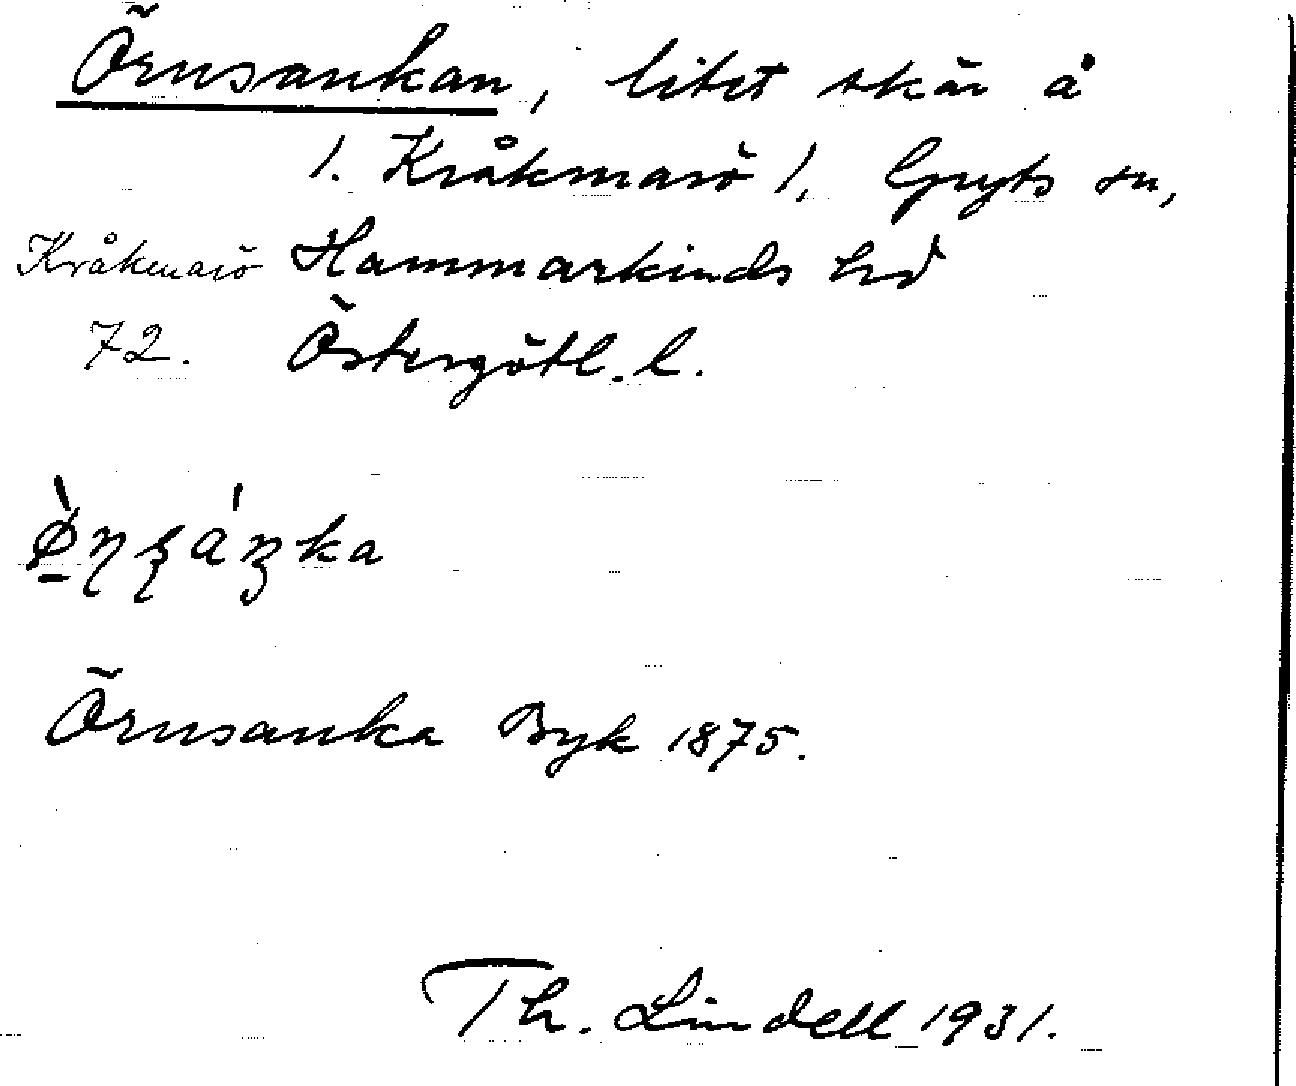 Örnsankan, litet skär å
1. Kråkmarö 1, Gryts sn,
Kråkmarö Hammarkinds hd
72. Östergötl. l.
Örnsanka Byk 1875.
Th. Lindell 1931.